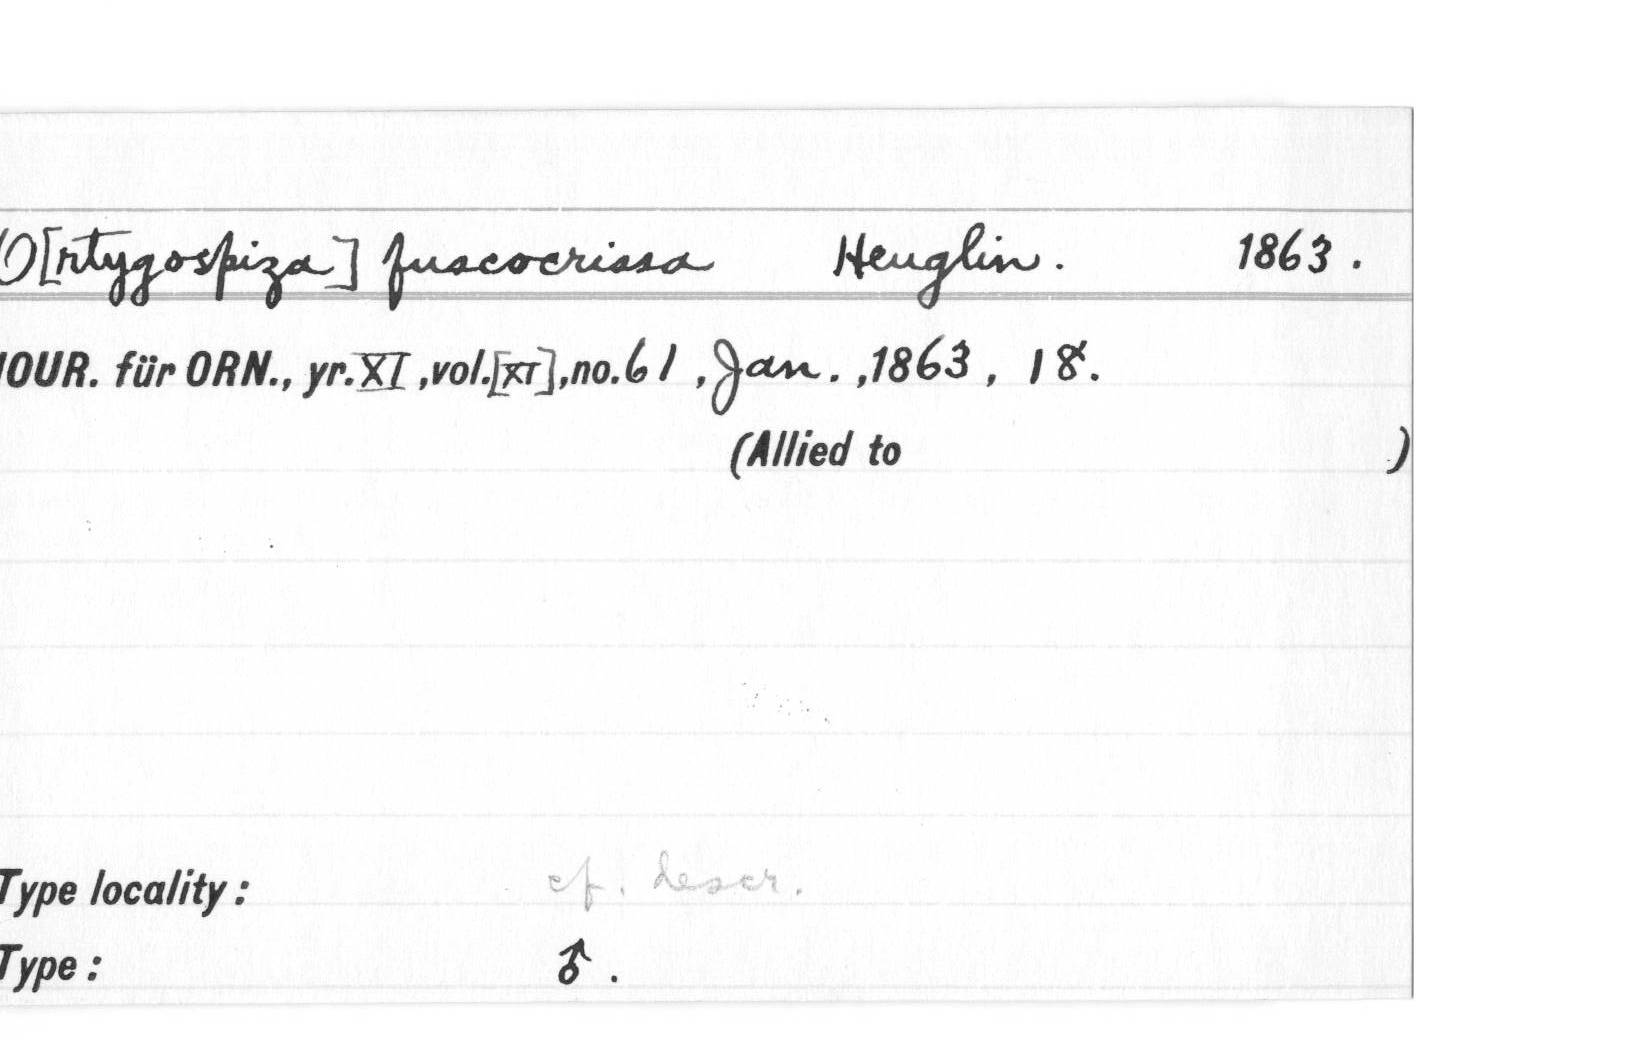 O[rtygospiza] fuscocrissa Heuglin. 1863.
JOUR. für ORN., yr. XI, vol. [XI], no. 61, Jan., 1863, 18.
(Allied to )
Type locality: cf. descr.
Type: ♂.